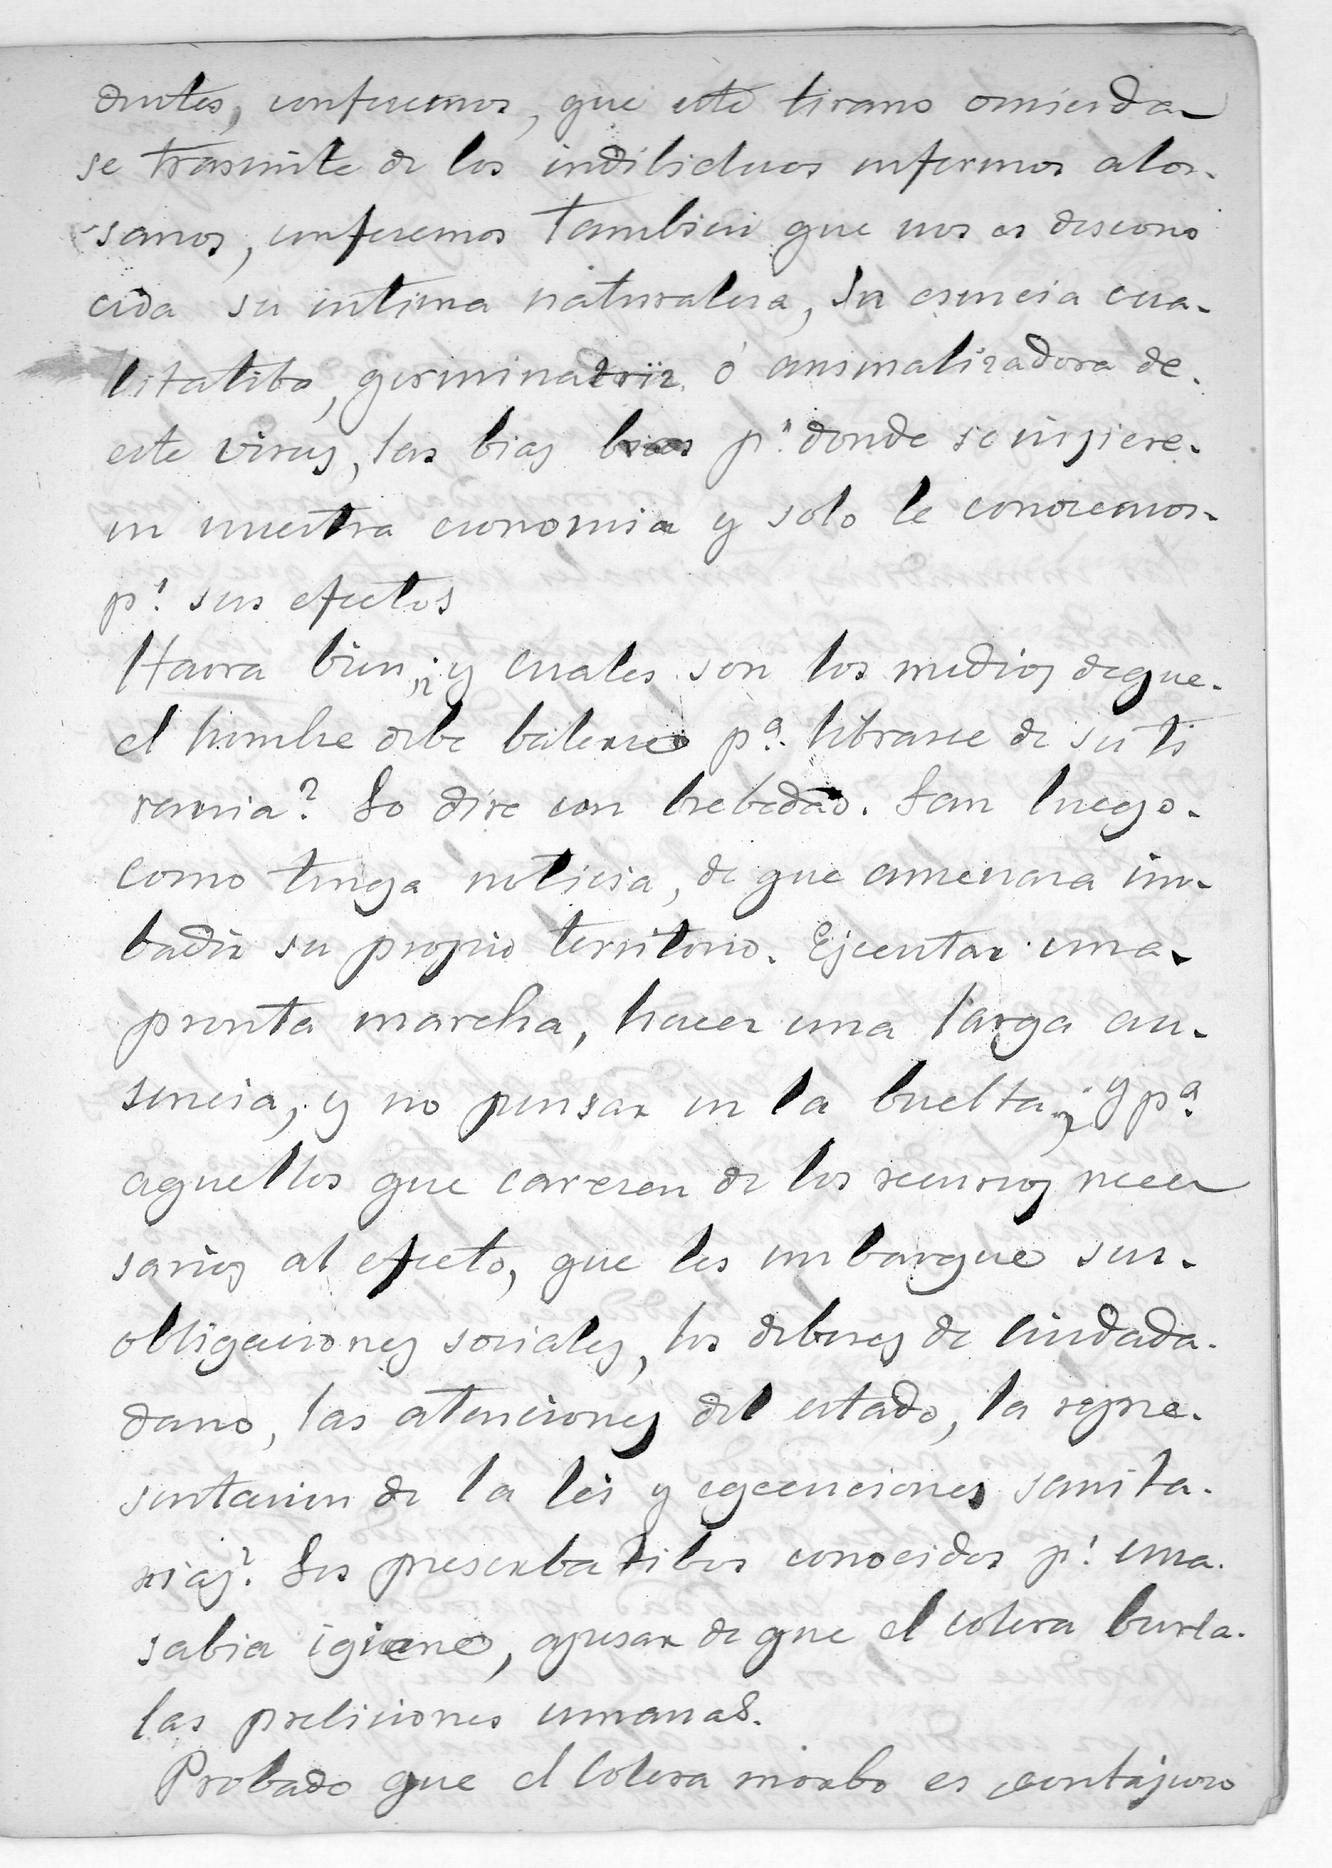 dentes, confesemos, que este tirano omisida
se trasmite de los indibiduos enfermos a los
sanos, confesemos tambien que nos es descono
cida su intima naturalesa, su esencia cua-
litatiba, germinatriz ó animalizadora de
este virus, las bias pr. donde se injiere
en nuestra economia y solo le conocemos
pr. sus efectos
Haora bien, ¿y cuales son los medios de que
el hombre debe balerse pa. librarse de su ti
rania? Lo dire con brebedad. Tan luego
como tenga noticia, de que amenasa im-
badir su propio territorio. Ejecutar una
pronta marcha, hacer una larga au-
sencia, y no pensar en la buelta, ¿y pa.
aquellos que carecen de los recursos nece
sarios al efecto, que les embargue sus
obligaciones sociales, los deberes de ciudada-
dano, las atenciones del estado, la repre-
sentacion de la lei y egecuciones sanita-
rias? Los preserbatibos conocidos pr. una
sabia igiene, apesar de que el colera burla
las prebiciones umanas.
Probado que el Colera morbo es contajioso